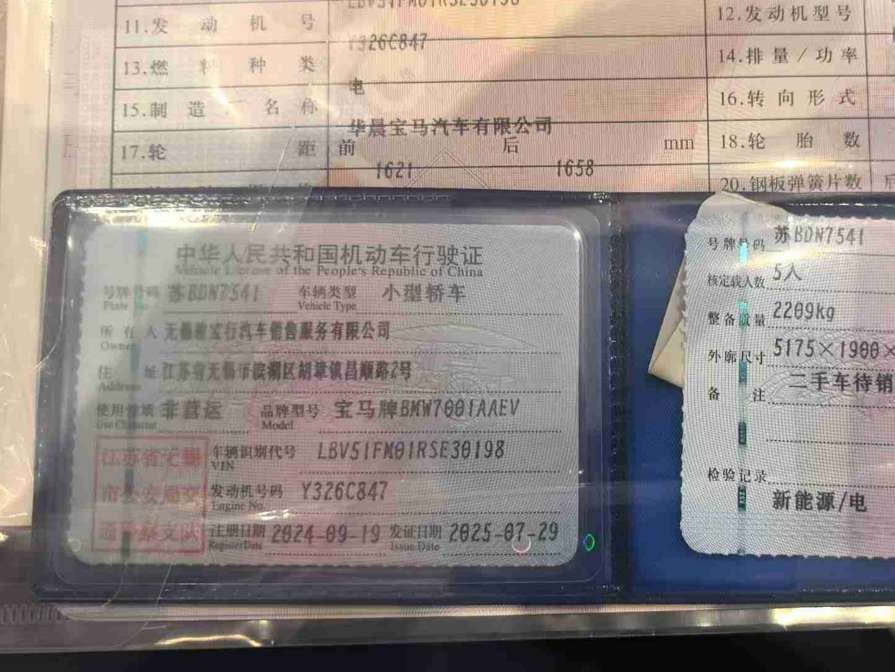 LBV51FM01RSE30198
11.发动机号
Y326C847
12.发动机型号
13.燃料种类
电
14.排量/功率
15.制造厂名称
华晨宝马汽车有限公司
16.转向形式
17.轮距
前 1621 后 1658 mm
18.轮胎数
20.钢板弹簧片数
中华人民共和国机动车行驶证
Vehicle License of the People's Republic of China
号牌号码 苏BDN7541 车辆类型 小型轿车
Plate No. Vehicle Type
所有人 无锡 宝行汽车销售服务有限公司
Owner
住址 江苏省无锡市滨湖区胡埭镇昌顺路2号
Address
使用性质 非营运 品牌型号 宝马牌BMW7001AAEV
Use Character Model
江苏省无锡
市公安局交
通警察支队
车辆识别代号 LBV51FM01RSE30198
VIN
发动机号码 Y326C847
Engine No.
注册日期 2024-09-19 发证日期 2025-07-29
Register Date Issue Date
号牌号码 苏BDN7541
核定载人数 5人
整备质量 2209kg
外廓尺寸 5175×1900×
备注 二手车待销
检验记录
新能源/电